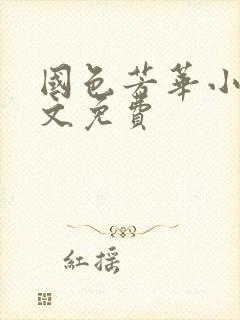 國色芳華小
文免費
紅搖